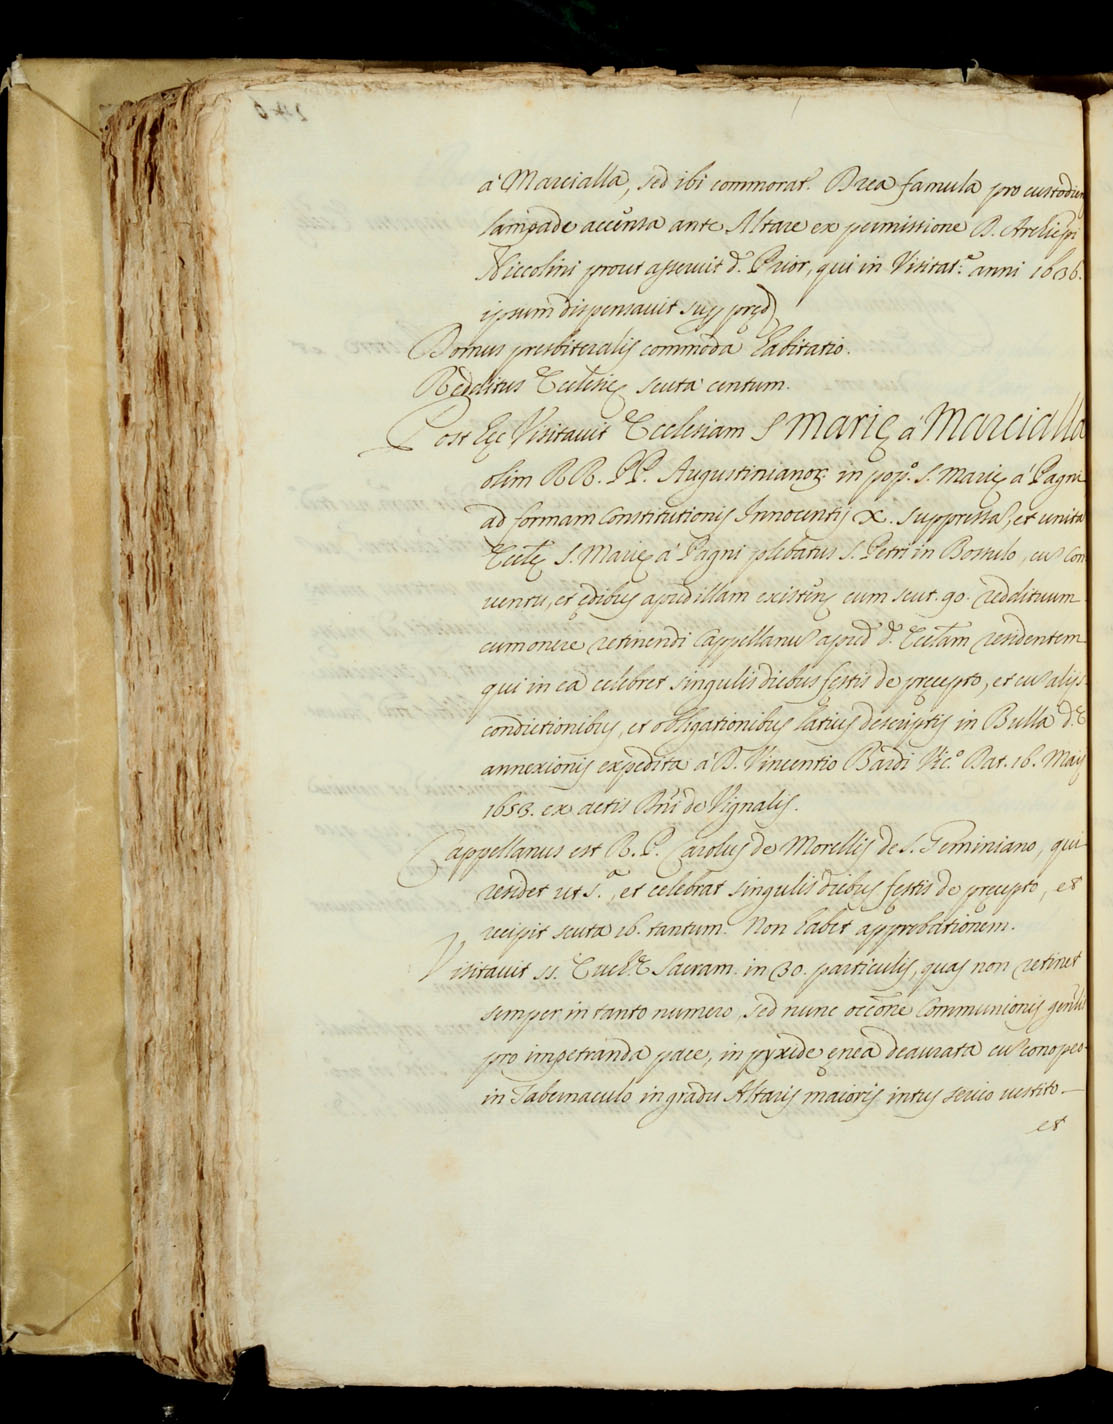 à Marcialla, sed ibi commorat. Brea famula pro custodien
lampade accensa ante Altare ex permissione D. Archiepi
Niccolini prout asseruit d. Prior, qui in Visitat.e anni 1636.
ipsum dispensavit sup pręd
Domus presbiteralis commoda habitatio.
Redditus Ecclesię scuta centum.
Post hęc Visitavit Ecclesiam S Marię à Marcialla
olim RR. PP. Augustinianor. in pop.o S. Marię à Pagni
ad formam Constitutionis Innocentij X. suppressa, et unita
Eccle S. Marię à Pagni plebatus S. Petri in Bossulo, cu Con
ventu, et ędibus apud illam existen cum scut. 90. reddituum
cum onere retinendi Cappellanu apud d. Ecclam residentem
qui in ea celebret singulis diebus festis de pręcepto, et cu alijs
condictionibus, et obligationibus latius descriptis in Bulla d.ę
annexionis expedita à D. Vincentio Bardi Vic.o Dat. 16. Maij
1653. ex actis Bni de Vignalis.
Cappellanus est R. P. Carolus de Morellis de S. Geminiano, qui
residet ut s.a, et celebrat singulis diebus festis de pręcepto, et
recipit scuta 16. tantum. Non habet approbationem.
Visitavit SS. Euch.ę Sacram. in 30. particulis, quas non retinet
semper in tanto numero, sed nunc occone Communionis genlis
pro impetranda pace, in pyxide ęnea deaurata cu conopeo
in Tabernaculo in gradu Altaris maioris intus serico vestito
et